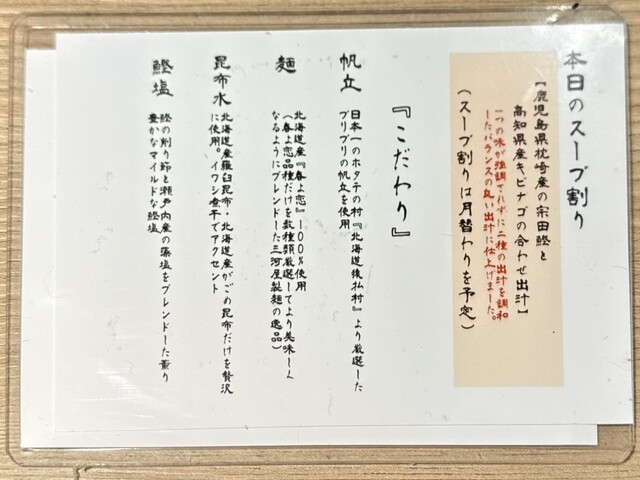 本日のスープ割り
【鹿児島県枕崎産の宗田鰹と
高知県産キビナゴの合わせ出汁】
一つの味が強調されずに二種の出汁を調和
したバランスの良い出汁に仕上げました。
(スープ割りは月替わりを予定)
『こだわり』
帆立
日本一のホタテの村『北海道猿払村』より厳選した
プリプリの帆立を使用
麺
北海道産『春よ恋』100%使用
(春よ恋品種だけを数種類厳選してより美味しく
なるようにブレンドした三河屋製麺の逸品)
昆布水
北海道産羅臼昆布・北海道産がごめ昆布だけを贅沢
に使用。イワシ煮干でアクセント
鰹塩
鰹の削り節と瀬戸内産の藻塩をブレンドした薫り
豊かなマイルドな鰹塩